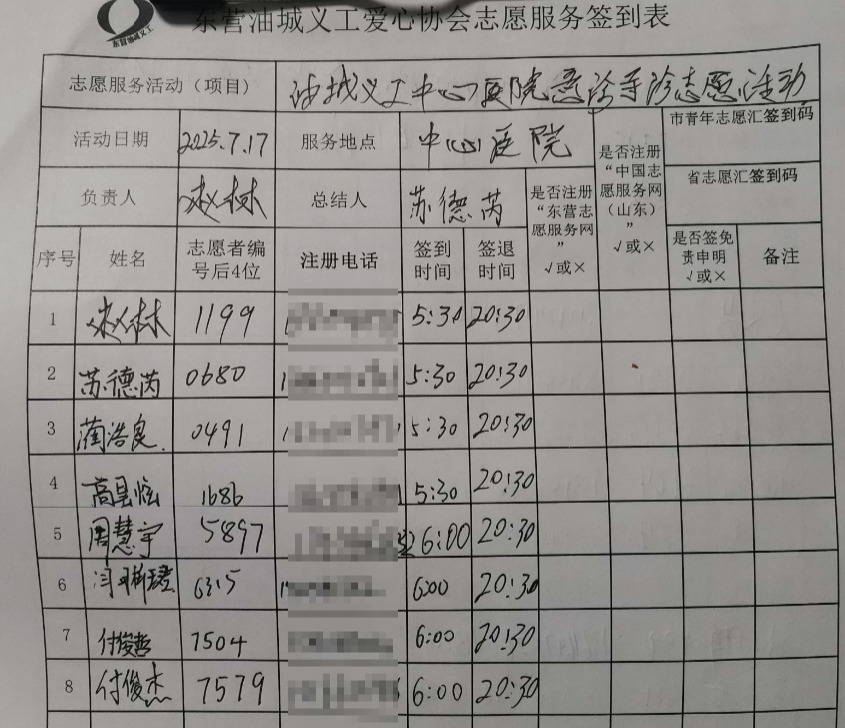 东营油城义工
东营油城义工爱心协会志愿服务签到表
志愿服务活动（项目） 油城义工中心医院意诊导诊志愿活动
活动日期 2025.7.17 服务地点 中心医院 是否注册“中国志愿服务网（山东）” √或× 市青年志愿汇签到码
负责人 赵林 总结人 苏德芮 是否注册“东营志愿服务网” √或× 省志愿汇签到码
序号 姓名 志愿者编号后4位 注册电话 签到时间 签退时间 是否签免责申明 √或× 备注
1 赵林 1199 1 5:30 20:30
2 苏德芮 0680 1 5:30 20:30
3 蔺浩良 0491 1 5:30 20:30
4 高昊炫 1686 5:30 20:30
5 周慧宇 5897 6:00 20:30
6 6315 1 6:00 20:30
7 付俊哲 7504 6:00 20:30
8 付俊杰 7579 6:00 20:30